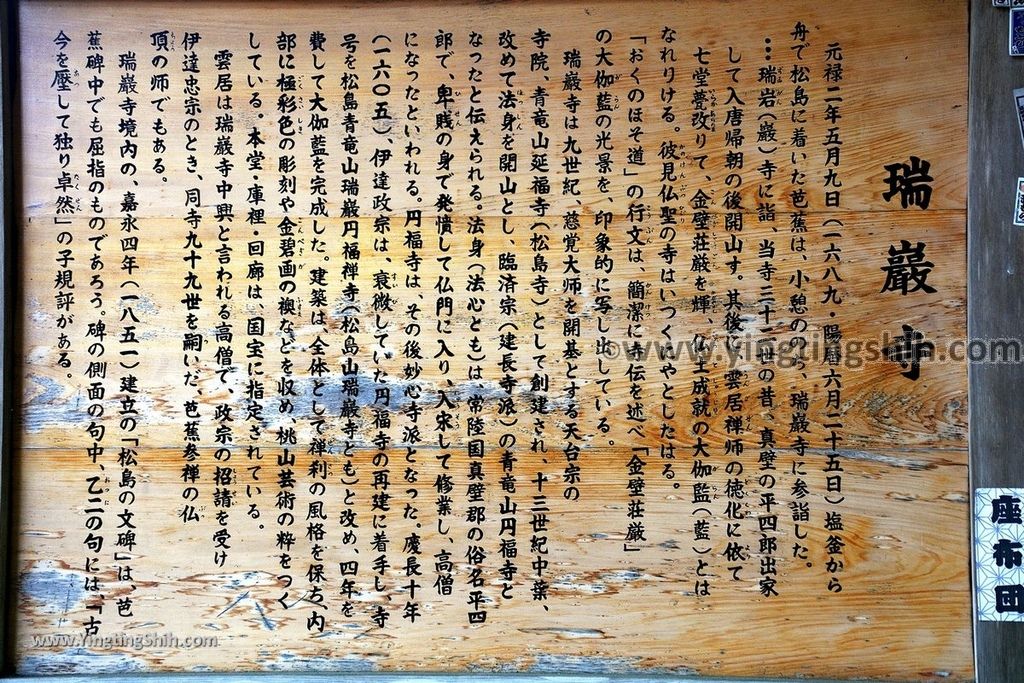 瑞巌寺
元禄二年五月九日（一六八九・陽暦六月二十五日）塩釜から
舟で松島に着いた芭蕉は、小憩ののち、瑞巌寺に参詣した。
…瑞岩（巌）寺に詣、当寺三十二世の昔、真壁の平四郎出家
して入唐帰朝の後開山す。其後に、雲居禅師の徳化に依て
七堂甍改りて、金壁荘厳を輝、仏土成就の大伽監（藍）とは
なれりける。彼見仏聖の寺はいづくにやとしたはる。
「おくのほそ道」の行文は、簡潔に寺伝を述べ「金壁荘厳」
の大伽藍の光景を、印象的に写し出している。
瑞巌寺は九世紀、慈覚大師を開基とする天台宗の
寺院、青竜山延福寺（松島寺）として創建され、十三世紀中葉、
改めて法身を開山とし、臨済宗（建長寺派）の青竜山円福寺と
なったと伝えられる。法身（法心とも）は、常陸国真壁郡の俗名平四
郎で、卑賤の身で発憤して仏門に入り、入宋して修業し、高僧
になったといわれる。円福寺は、その後妙心寺派となった。慶長十年
（一六〇五）、伊達政宗は、衰微していた円福寺の再建に着手し、寺
号を松島青竜山瑞巌円福禅寺（松島山瑞巌寺とも）と改め、四年を
費して大伽藍を完成した。建築は、全体として禅刹の風格を保ち、内
部に極彩色の彫刻や金碧画の襖などを収め、桃山芸術の粋をつく
している。本堂・庫裡・回廊は、国宝に指定されている。
雲居は瑞巌寺中興と言われる高僧で、政宗の招請を受け
伊達忠宗のとき、同寺九十九世を嗣いだ、芭蕉参禅の仏
頂の師でもある。
瑞巌寺境内の、嘉永四年（一八五一）建立の「松島の文碑」は、芭
蕉碑中でも屈指のものであろう。碑の側面の句中、乙二の句には、「古
今を壓して独り卓然」の子規評がある。
座布団
©www.yingtingshih.com
www.YingtingShih.com